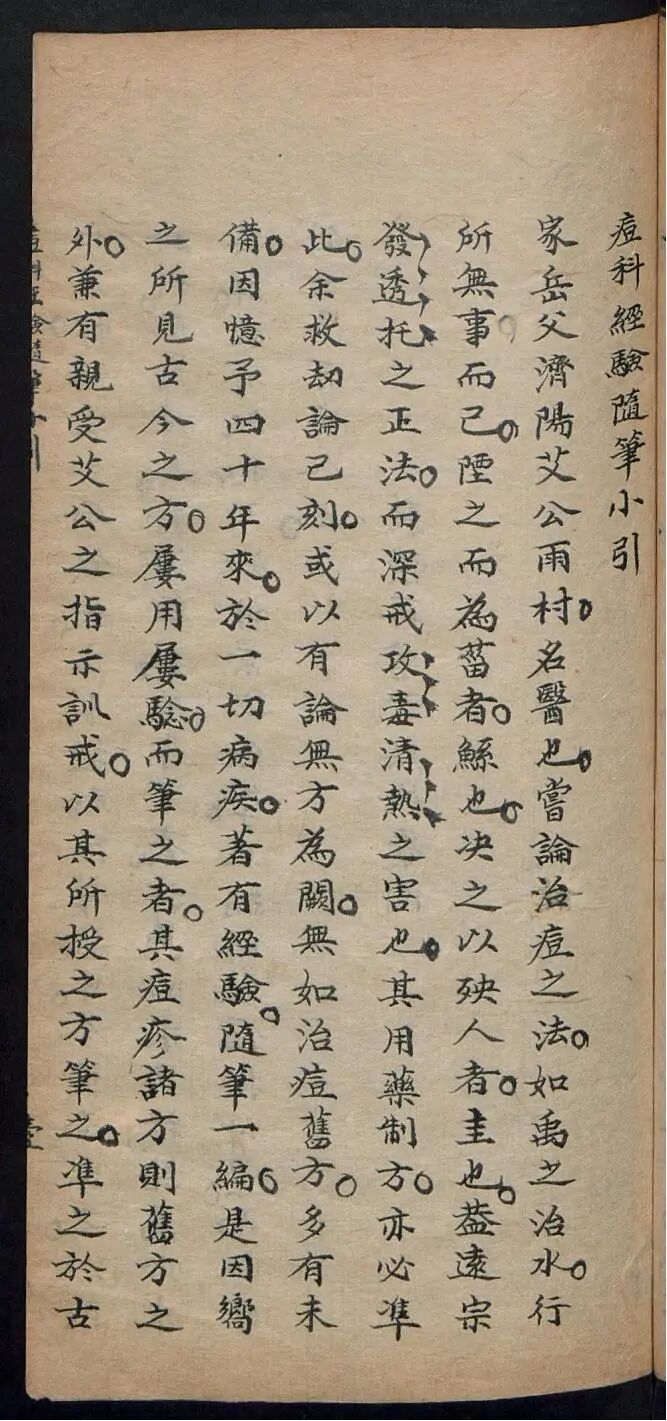 痘科經驗隨筆小引
家岳父濟陽艾公雨村。名醫也。嘗論治痘之法。如禹之治水。行
所無事而已。陻之而為菑者。鯀也。决之以殃人者。圭也。葢遠宗
發、透、托、之正法。而深戒攻、毒、清、熱、之害也。其用藥制方。亦必準
此。余救劫論已刻。或以有論無方為闕。無如治痘舊方。多有未
備。因憶予四十年來。於一切病疾。著有經驗。隨筆一編。是因嚮
之所見古今之方。屢用屢驗。而筆之者。其痘疹諸方則舊方之
外。兼有親受艾公之指示訓戒。以其所授之方筆之。準之於古
痘科經驗隨筆小引
壹